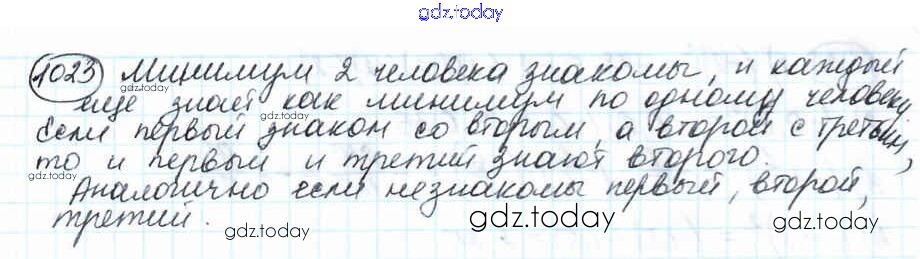 gdz.today
1023 Минимум 2 человека знакомы, и каждый
gdz.today
еще знает как минимум по одному человеку
gdz.today
Если первый знаком со вторым, а второй с третьим,
то и первый и третий знают второго.
gdz.today
Аналогично если незнакомы первый, второй,
третий.
gdz.today
gdz.today
gdz.today